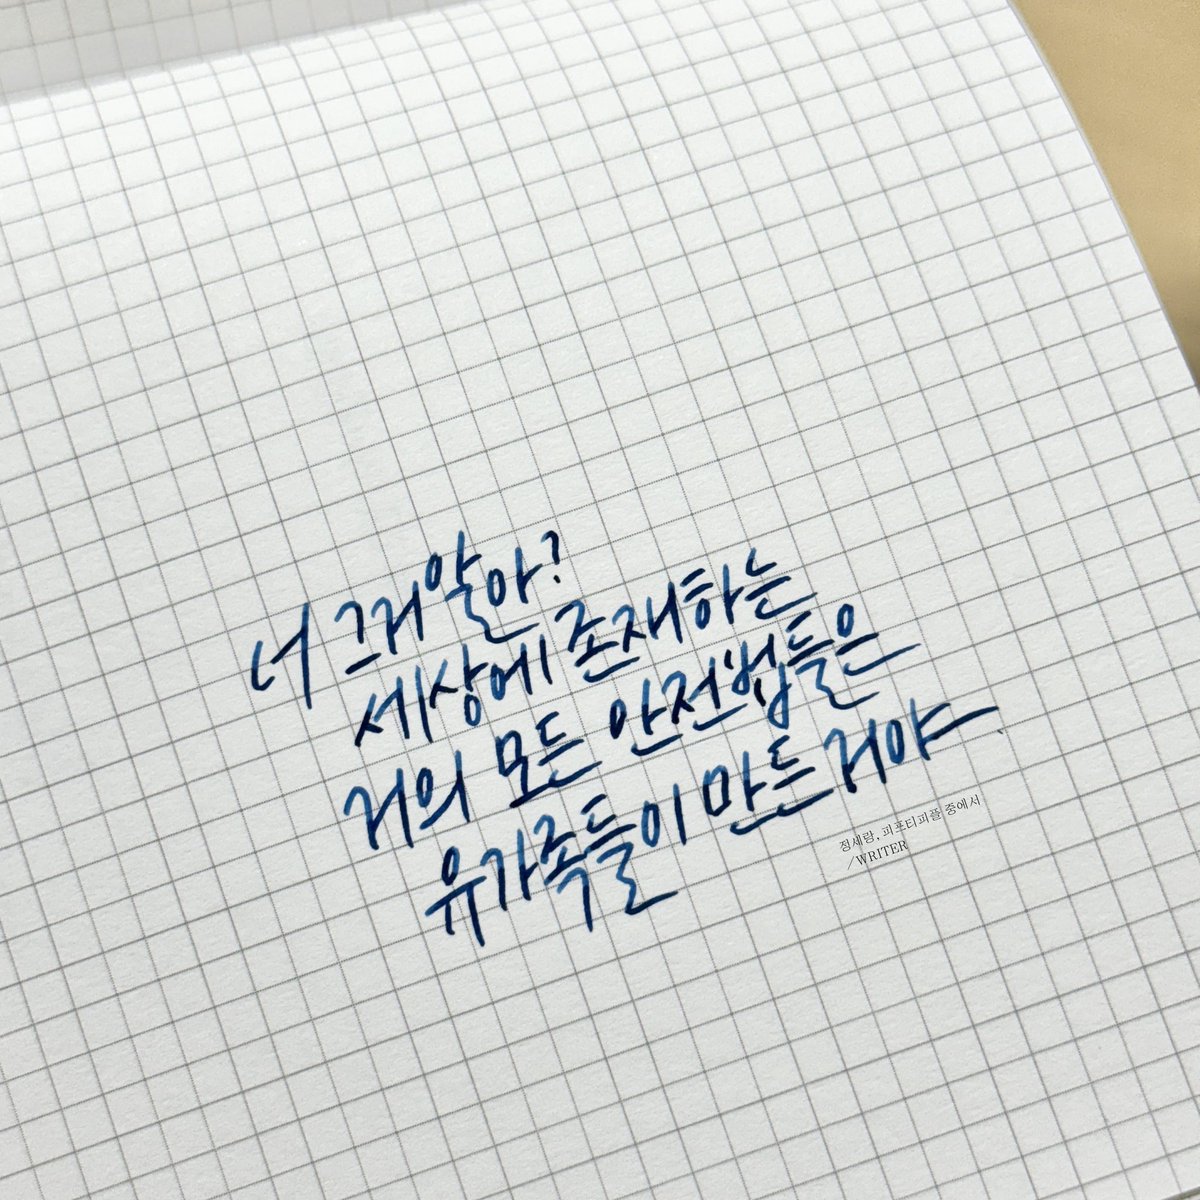 너 그거 알아?
세상에 존재하는
거의 모든 안전법들은
유가족들이 만든 거야.
정세랑, 피프티피플 중에서
/WRITER